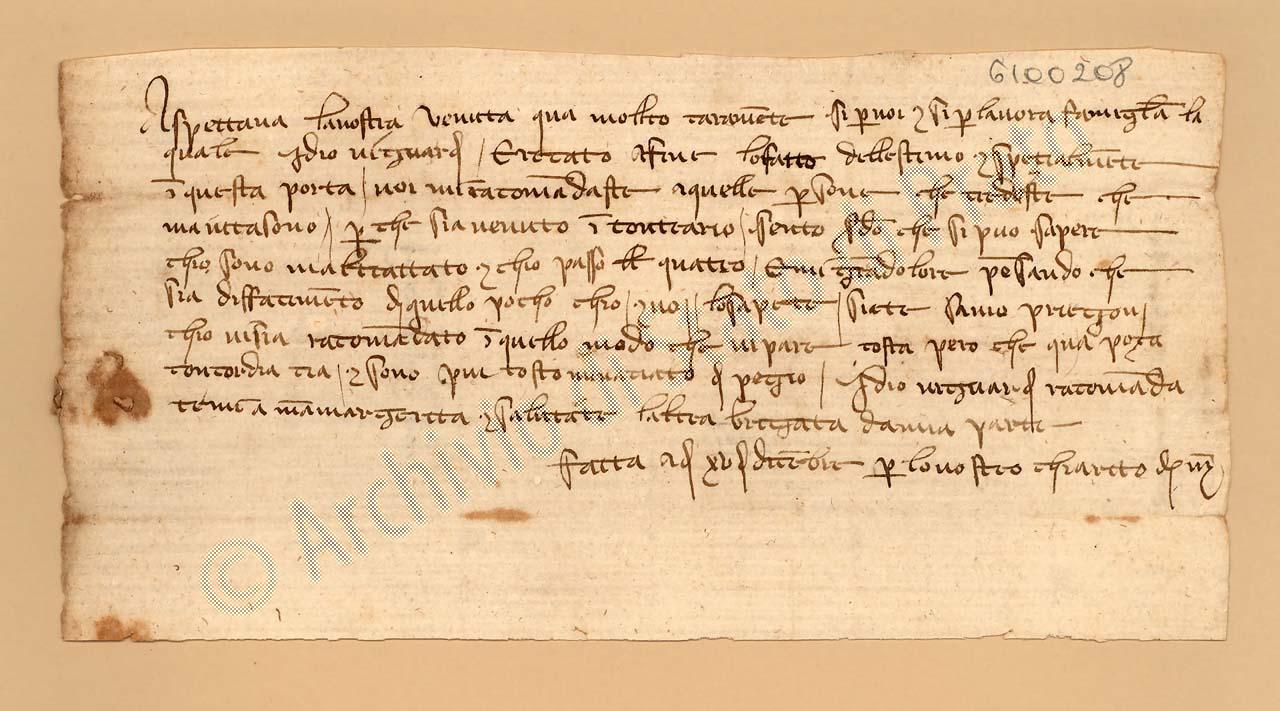 6100208
Aspettava la vostra venuta qua molto caramēte si p voi e si p la vora famigl̄a la
quale Idio vi ghuardi / Erecato a fine lo fatto dellestimo e spetialmēte
ī questa porta / voi mi racomādaste a quelle psone che credeste che
maiutasono / p che sia venuto ī contrario / sento che si puo sapere
chio sono maltrattato e chio passo quatro / Emi grā dolore pēsando che
sia diffacimēto di quello pocho chio / voi lo sapete / siete savio priegovi
chio vi sia racomādato ī quello modo che vi pare tosta pero che qua pocha
concordia cia / e sono piu tosto minacciato di pegio / Idio vi guardi racomāda
temi a mōa margerita e salutate laltra brigata da mia parte
Fatta adi xv di dicēbre p lo vostro chiarito di
© Archivio di Stato di Prato